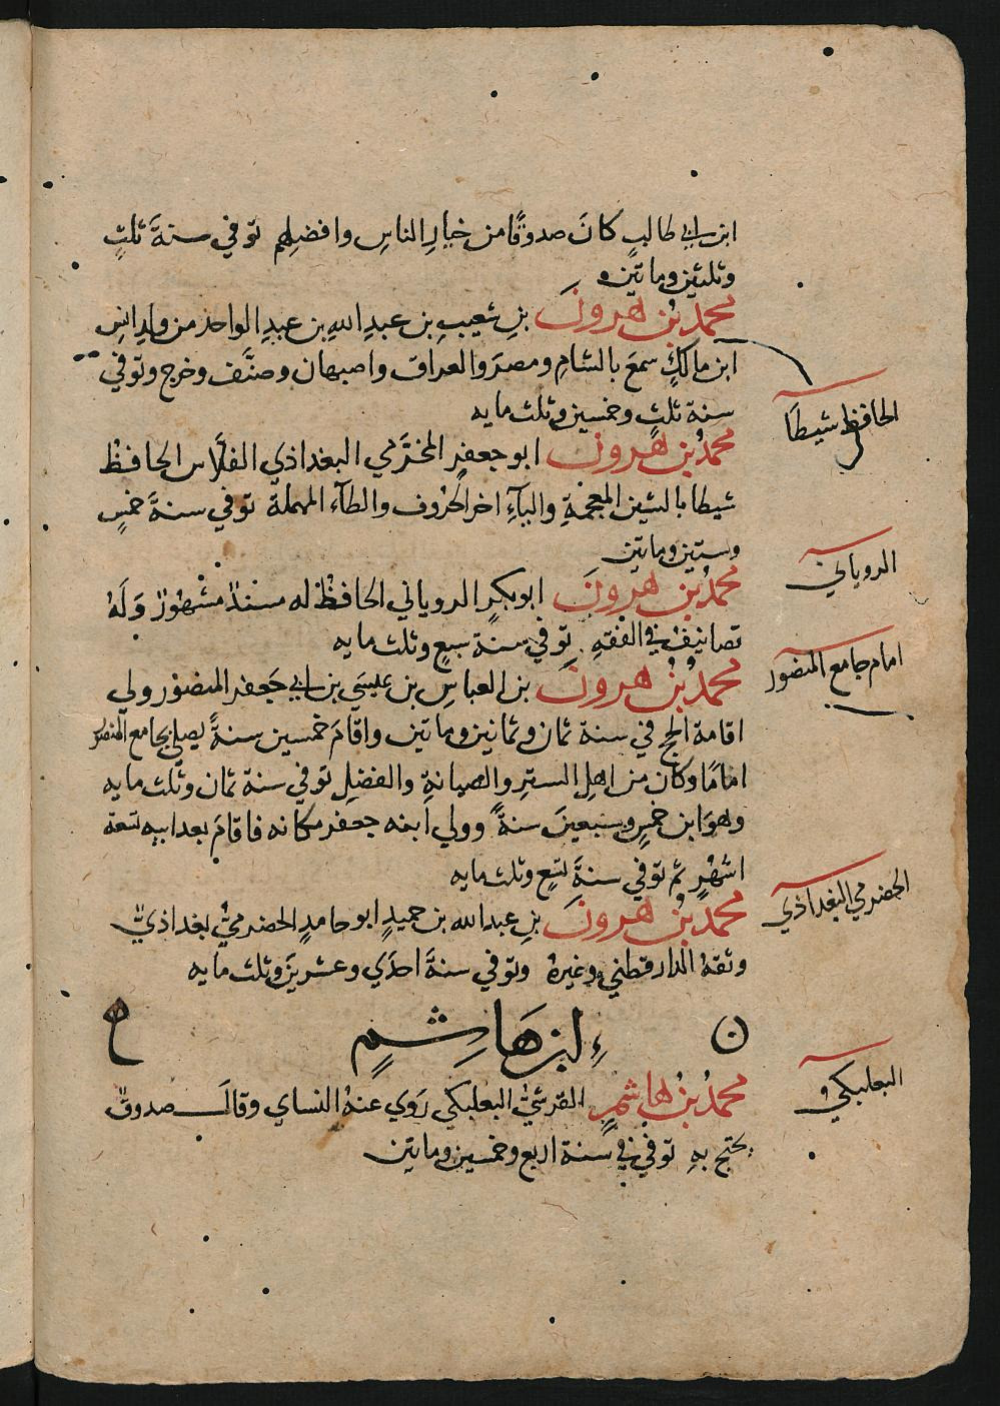 ابن ابي طالب كانَ صدوقًا من خيارِ الناسِ وافضلِهم توفي سنةَ ثلثٍ
وثلثين وماتين
محمدُ بنُ هرونَ بنِ شعيبِ بن عبدِ اللهِ بن عبدِ الواحد من ولد انسِ
ابن مالكٍ سمعَ بالشامِ ومصرَ والعراقِ واصبهان وصنَّف وخرج وتوفي
سنة ثلثٍ وخمسين وثلث مايه
الحافظ شيطَا
محمدُ بن هرونَ ابو جعفرٍ المخرَّمي البغداذي الفلَّاس الحافظُ
شيطا بالشين المعجمةِ واليآءِ اخر الحُروف والطآء المهملة توفي سنةَ خمسٍ
وستين وماتين
الروياني
محمدُ بن هرونَ ابو بكرٍ الروياني الحافظُ له مسندٌ مشهورٌ وَلَهُ
تصانيفُ في الفقهِ توفي سنة سبعٍ وثلث مايه
امام جامع المنصور
محمدُ بنُ هرونَ بن العباسِ بن عيسَي بن ابي جَعفر المنصور ولي
اقامة الحج في سنة ثمان وثمانين وماتين واقامَ خمسين سنةً يصلي بجامع المنصور
امامًا وكان من اهلِ السترِ والصيانةِ والفضلِ توفي سنة ثمان وثلث مايه
وهوَ ابن خمسٍ وسبعينَ سنةً وولي ابنه جعفر مكانه فاقامَ بعد ابيه تسعة
اشهُرٍ ثم توفي سنةَ تسعٍ وثلث مايه
الحضرمي البغداذي
محمدُ بنُ هرونَ بنِ عبد الله بن حميدٍ ابو حامدٍ الحضرميُّ بغداذيٌّ
وثقهُ الدارقطني وغيرهُ وتوفي سنةَ احدَي وعشرينَ وثلث مايه
ن ابن هَاشِمٍ ح
البعلبكي
محمدُ بنُ هاشمٍ القرشيُّ البعلبكي رَوي عنهُ النساي وقالَ صدوقٌ
يحتج بهِ توفي في سنة اربع وخمسين وماتين